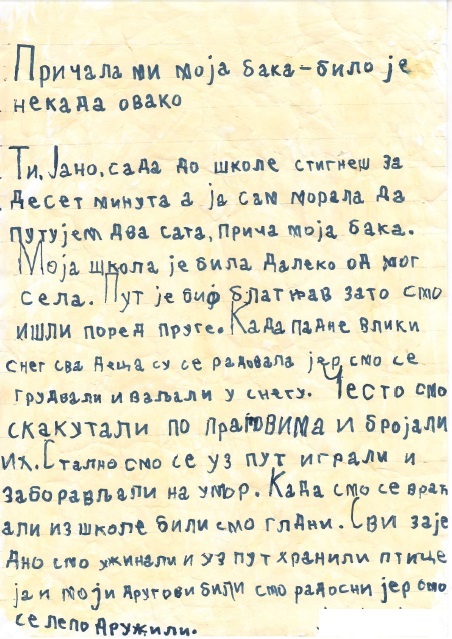 Причала ми моја бака – било је
некада овако
Ти, Јано, сада до школе стигнеш за
десет минута а ја сам морала да
путујем два сата, прича моја бака.
Моја школа је била далеко од мог
села. Пут је био блатњав зато смо
ишли поред пруге. Када падне влики
снег сва деца су се радовала јер смо се
грудвали и ваљали у снегу. Често смо
скакутали по праговима и бројали
их. Стално смо се уз пут играли и
заборављали на умор. Када смо се враћ
али из школе били смо глдни. Сви заје
дно смо ужинали и уз пут хранили птице
ја и моји другови били смо радосни јер смо
се лепо дружили.